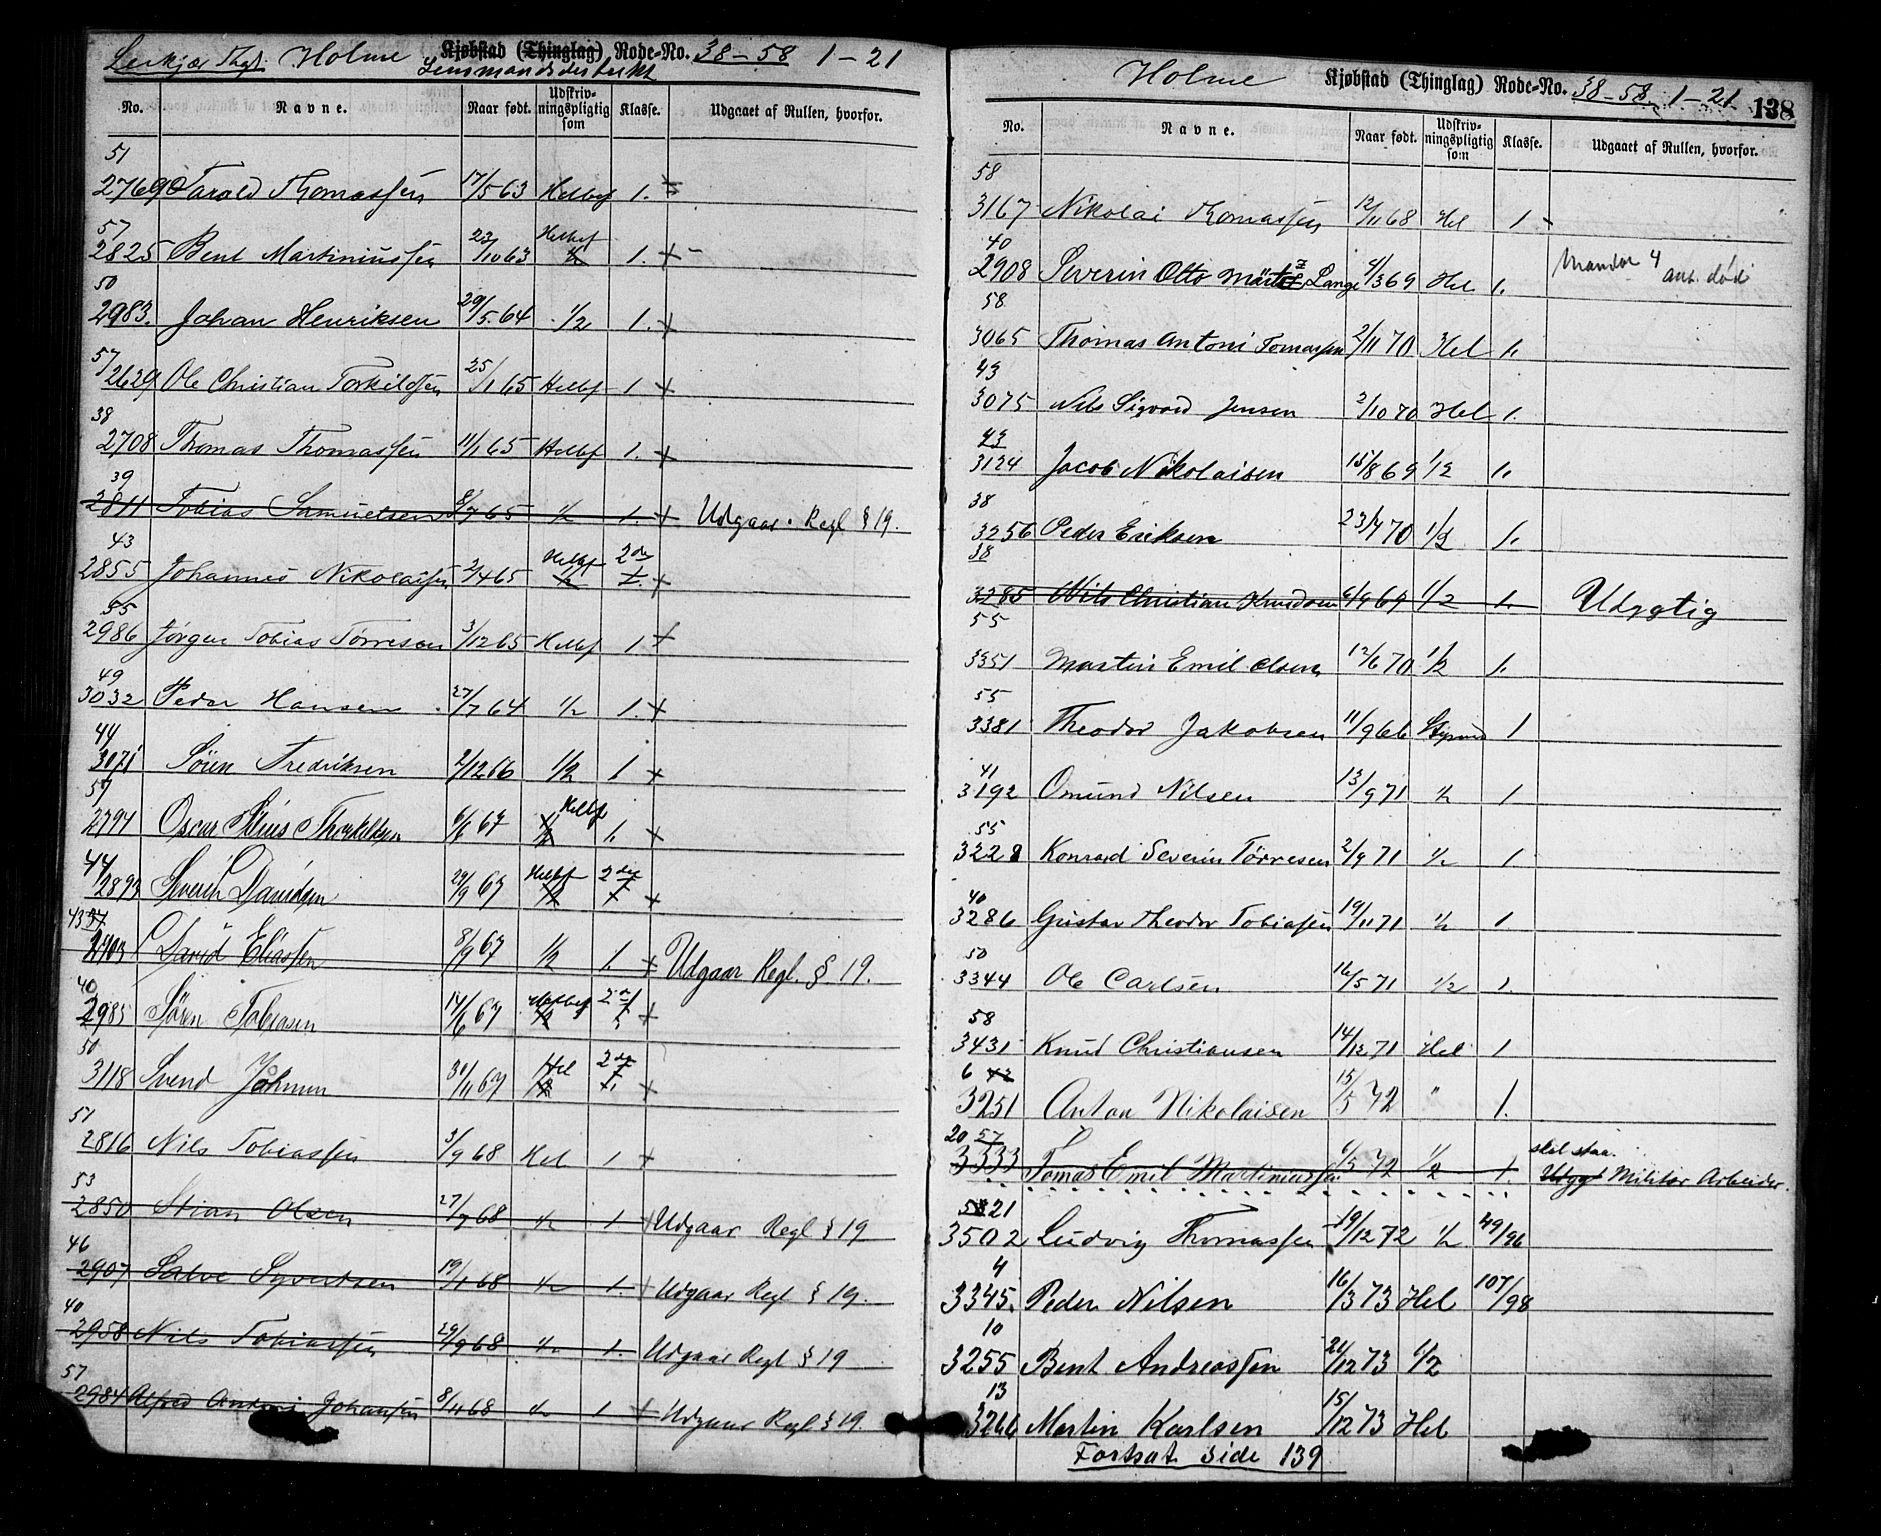 Holme Kjøbstad (Thinglag) Rode-No. 38-58 1-21
Lensmandsdistrikt
No. Navne. Naar født. Udskrivningspligtig som Klasse. Udgaaet af Rullen, hvorfor.
51
2769 Tarald Thomassen 17/5 63 Helbef 1.
57
2825 Bent Martiniussen 23/10 63 Helbef 1/2 1. +
50
2983. Johan Henriksen 29/5. 64 1/2 1. +
57
2629 Ole Christian Torkildsen 25/1 65 Helbf 1 +
38
2708 Thomas Thomassen 11/1 65 Helbf 1. +
39
2811 Tobias Samuelsen 8/7 65 1/2 1. + Udgaar. Regl § 19.
43
2855 Johannes Nikolaisen 2/4 65 Helbf 1/2 2de 1. +
55
2986 Jørgen Tobias Tørresen 3/12 65 Helbf 1 +
49
3032 Peder Hansen 27/7 64 1/2 1. +
44
3071 Sören Fredriksen 2/12 66 1/2 1 +
57
2794 Oscar Thorkildsen 6/6 67 Helbf 1/2 1. +
44
2893 Severin Davidsen 29/9 67 Helbf 1/2 2de 1 +
43
2903 David Eliassen 8/9 67 1/2 1. + Udgaar Regl. § 19.
40
2985 Søren Tobiasen 14/6 67 Helbef 1/2 2de +
50
3118 Svend Johnsen 30/11 67 Hel 1/2 2de 1 +
51
2816 Nils Tobiassen 3/9 68 Hel 1 +
53
2850 Stian Olsen 27/7 68 1/2 1 + Udgaar Regl § 19
46
2907 Salve Syvertsen 19/1 68 1/2 1. + Udgaar Regl § 19.
40
2958 Nils Tobiassen 29/9 68 1/2 1. + Udgaar Regl § 19
57
2984 Alfred Antoni Johansen 8/4 68 1/2 1 + Udgaar Regl § 19.
Holme Kjøbstad (Thinglag) Rode-No. 38-58 1-21 138
No. Navne. Naar født. Udskrivningspligtig som Klasse. Udgaaet af Rullen, hvorfor.
58
3167 Nikolai Thomassen 12/11 68 Hel 1
40
2908 Severin Otto Lange 4/3 69 Hel 1. ant. død
58
3065 Thomas Antoni Tomassen 2/11 70 Hel 1.
43
3075 Nils Sigvard Jensen 2/10 70 Hel 1.
43
3124 Jacob Nikolaisen 15/8 69 1/2 1.
38
3256 Peder Eriksen 23/7 70 1/2 1.
38
3285 Nils Christian Knudsen 9/9 69 1/2 1. Udygtig
55
3351 Martin Emil Olsen 12/6 70 1/2 1.
55
3381 Theodor Jakobsen 11/9 66 Styrmd 1
41
3192 Omund Nilsen 13/9 71 1/2 1
55
3228 Konrad Severin Tørresen 2/9 71 1/2 1
40
3286 Gustav Theodor Tobiassen 19/11 71 1/2 1
50
3344 Ole Carlsen 16/5 71 1/2 1.
58
3431 Knud Christiansen 14/12 71 Hel 1
6 43
3251 Anton Nikolaisen 15/5 72 " 1.
20 57 skal staa.
3333 Tomas Emil Martiniussen 6/5 72 1/2 1. Udygt Militær Arbeider.
58 21
3502 Ludvig Thomassen 19/12 72 1/2 49/96
4
3345. Peder Nilsen 16/3 73 Hel 107/98
10
3255 Bent Andreassen 21/12 73 1/2
13
3266 Martin Karlsen 15/12 73 Hel
Fortsat side 139